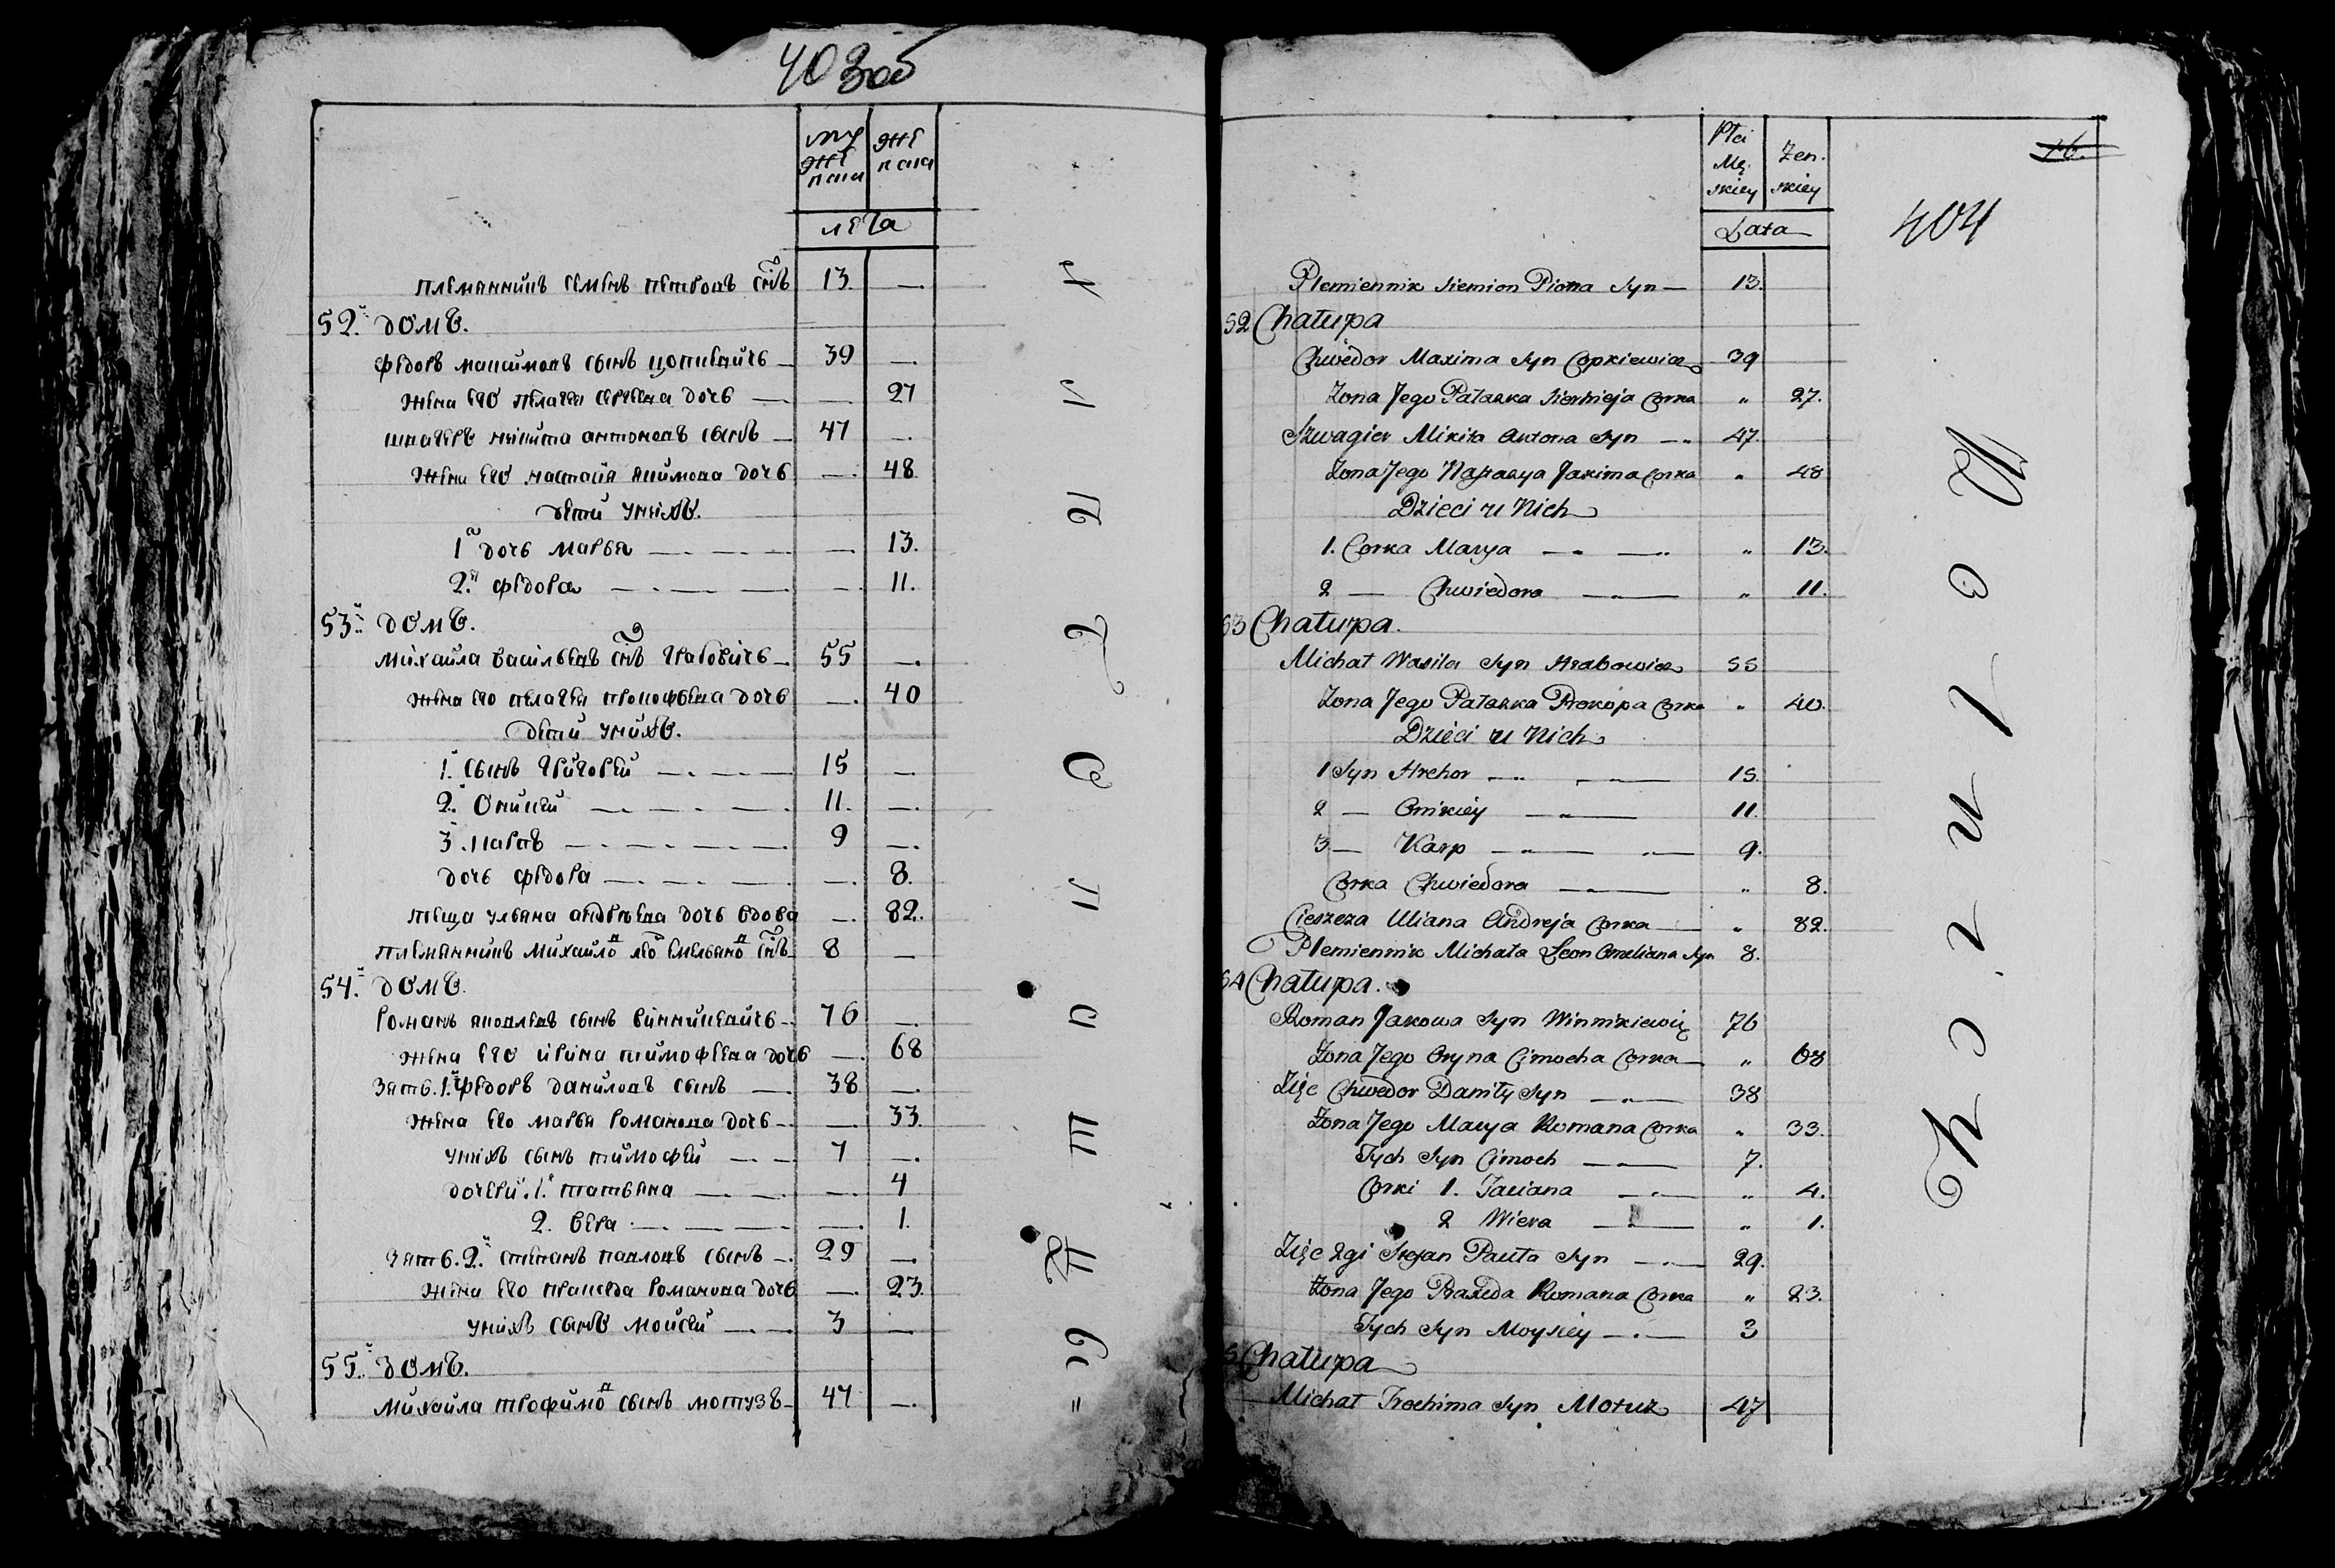 403об
му же ска | же ска
лета
племянникъ семенъ петровъ снъ 13 —
52.й домъ.
федоръ максимовъ сынъ цопкевичь — 39 —
жена его пелагея сергеева дочь — — 27
швагеръ никита антоновъ сынъ — 47 —
жена его настасия якимова дочь — 48
дети унихъ.
1я дочь марья — — 13.
2.я федора — — 11.
53й домъ.
михайла васильевъ снъ грабовичь — 55 —
жена его пелагея прокофьева дочь — 40
дети унихъ.
1. сынъ григорей — 15 —
2. Оникей — 11. —
3. карпъ — 9 —
дочь федора — — 8.
теща ульяна андреева дочь вдова — 82.
племянникъ михайлов лео емельянов снъ 8 —
54.й домъ.
романъ яковлевъ сынъ винникевичь — 76 —
жена его ирина тимофеева дочь — 68
зять.1.й федоръ даниловъ сынъ — 38 —
жена его марья романова дочь — — 33.
унихъ сынъ тимофей — 7 —
дочери.1. татьяна — — 4
2. вера — — 1.
зять.2.й степанъ павловъ сынъ — 29 —
жена его пракседа романова дочь — 23.
унихъ сынъ моисей — 3 —
55.й домъ.
михайла трофимов сынъ мотузъ — 47 —
Płci Mę skiey | Zen. skiey
Lata
404
Plemiennik Siemion Piotra Syn — 13.
52 Chałupa
Chwedor Maxima Syn Copkiewicz 39
Zona Jego Pałaska Sierhieja Corka „ 27.
Szwagier Mikita Antona Syn — 47
Zona Jego Nastasya Jakima Corka „ 48
Dzieci u Nich
1. Corka Marya — „ 13.
2 — Chwiedora — „ 11.
53 Chałupa.
Michał Wasila Syn Hrabowicz 55
Zona Jego Pałaska Prokopa Corka „ 40.
Dzieci u Nich
1 Syn Hrehor — 15.
2 — Onikiey — 11.
3 — Karp — 9.
Corka Chwiedora — „ 8.
Cieszcza Uliana Andreja Corka — „ 82.
Plemiennik Michała Leon Omeliana Syn 8.
54 Chałupa.
Roman Jakowa Syn Winnikiewicz 76
Zona Jego Oryna Cimocha Corka — „ 68
Zięc Chwedor Daniły Syn — 38
Zona Jego Marya Romana Corka „ 33.
Tych Syn Cimoch — 7.
Corki 1. Taciana — „ 4.
2 Wiera — „ 1.
Zięc 2gi Stefan Pauła Syn — 29.
Zona Jego Praxeda Romana Corka „ 23.
Tych Syn Moysiey — 3
5 Chałupa
Michał Trochima Syn Motuz 47